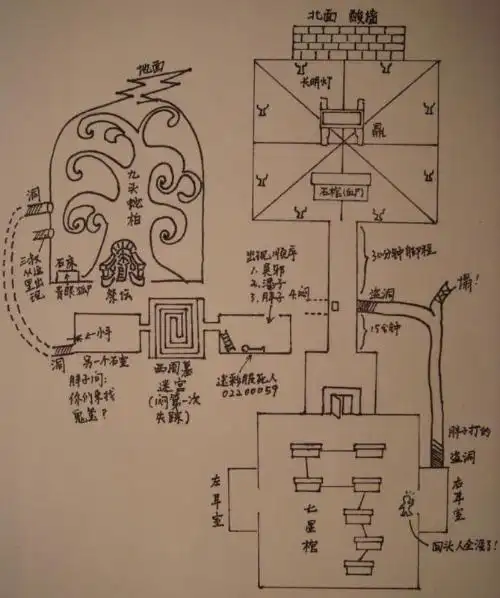 北面 酸墙
长明灯
鼎
石棺(血尸)
地面
九头蛇柏
洞
三叔
从这
里出现
石床
青眼狐
祭坛
出现顺序
1. 吴邪
2. 潘子
3. 胖子 4. 闷
30分钟脚程
盗洞
15分钟
塌!
小手
洞
另一个石室
胖子问:
你们来找
鬼玺?
西周墓
迷宫
(闷第一次
失踪)
迷彩服死人
02200059
胖子打的
盗洞
左耳室
七星棺
右耳室
回头人全没了!